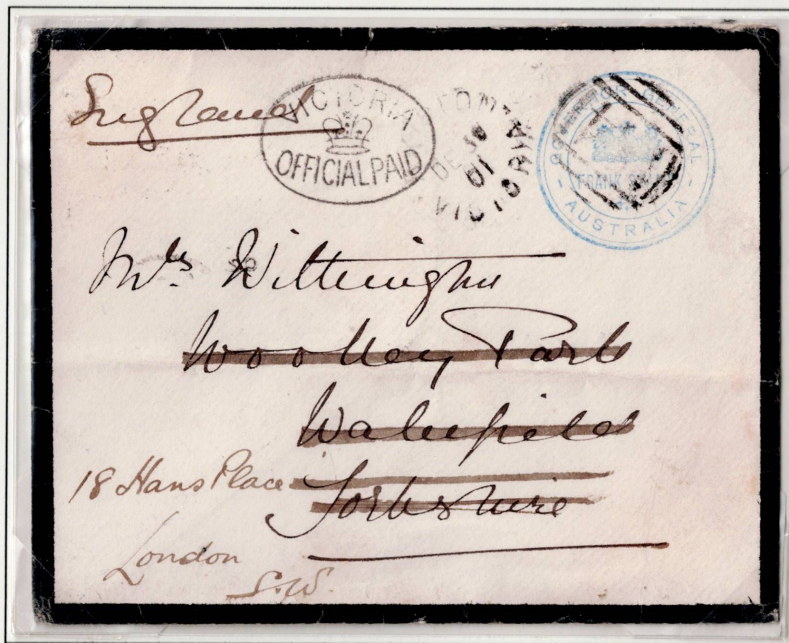 England
VICTORIA
OFFICIAL PAID
DE 01
VICTORIA
GOVERNOR GENERAL
FRANK
AUSTRALIA
Mrs
Woolley Park
Wakefield
Yorkshire
18 Hans Place
London
S.W.